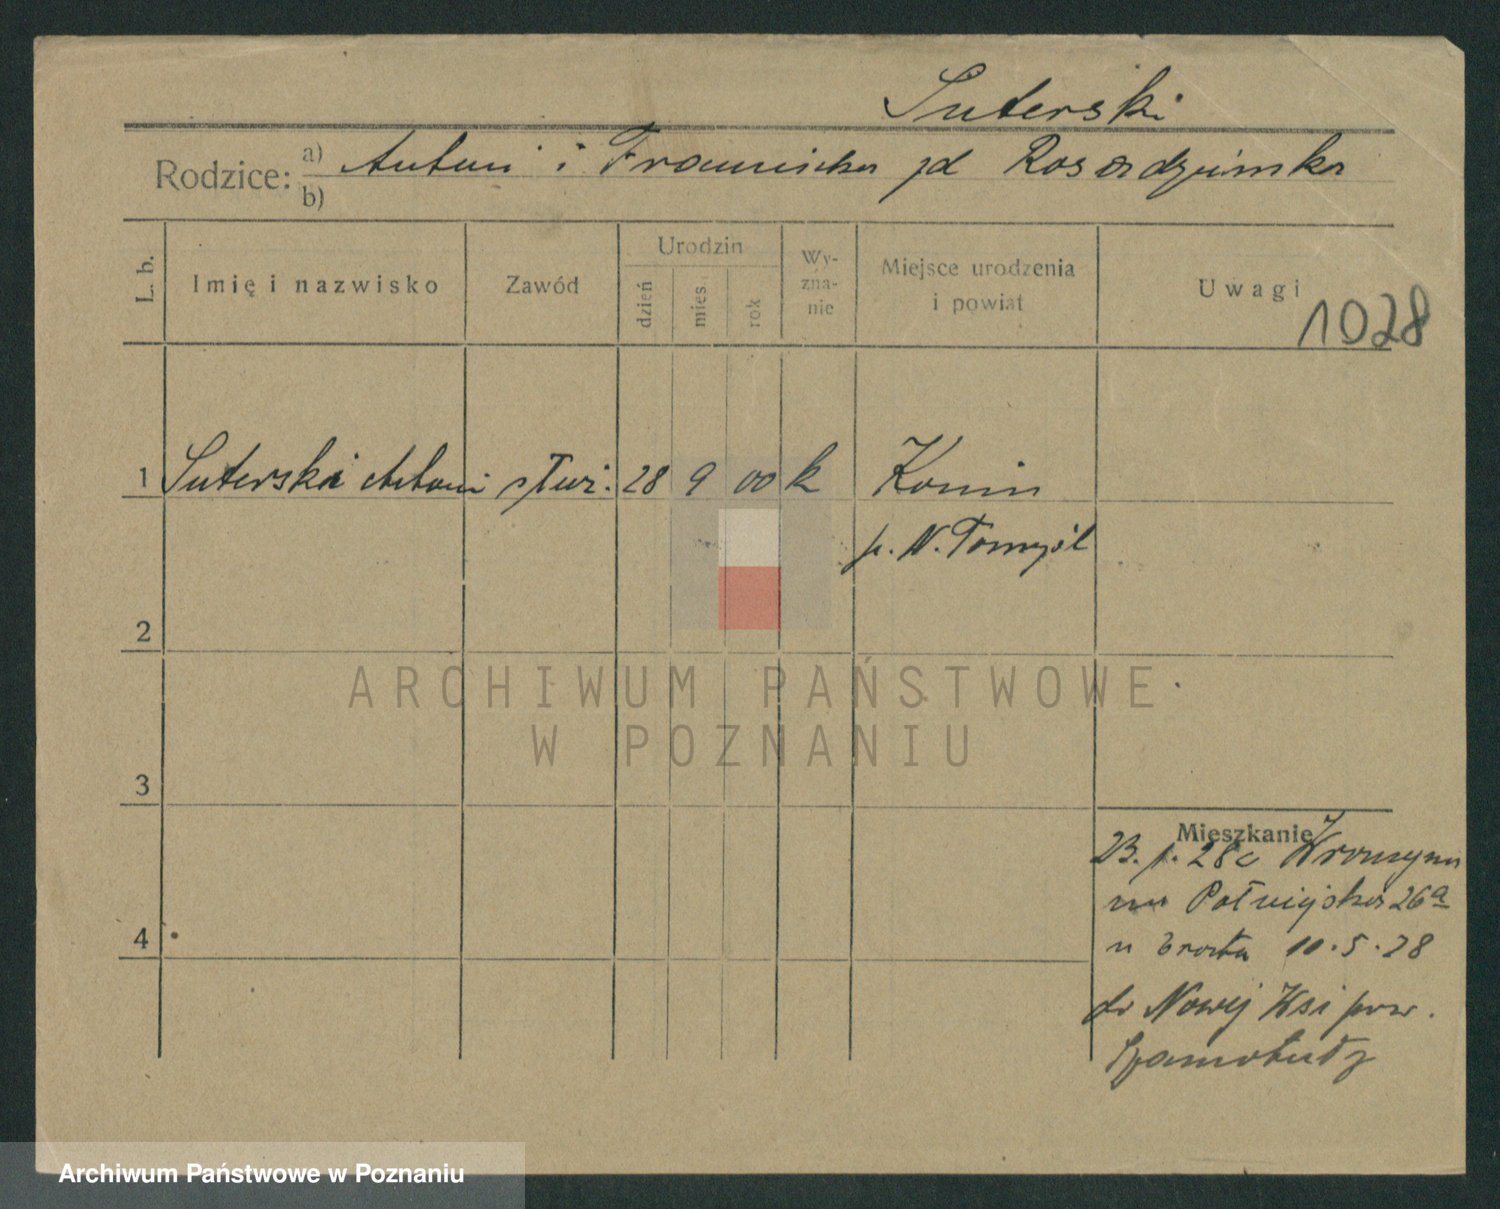 Suterski
Rodzice: a) Antoni i Franciszka zd
b)
L. b. Imię i nazwisko Zawód Urodzin dzień mies. rok Wy-zna-nie Miejsce urodzenia i powiat Uwagi
1028
1 Suterski Antoni służ. 28 9 00 k Konin
p. N. Tomyśl
2
ARCHIWUM PAŃSTWOWE
W POZNANIU
3
Mieszkanie
23. 28
26a
10.5.28
do Nowej Wsi pow.
Szamotuły
4
Archiwum Państwowe w Poznaniu